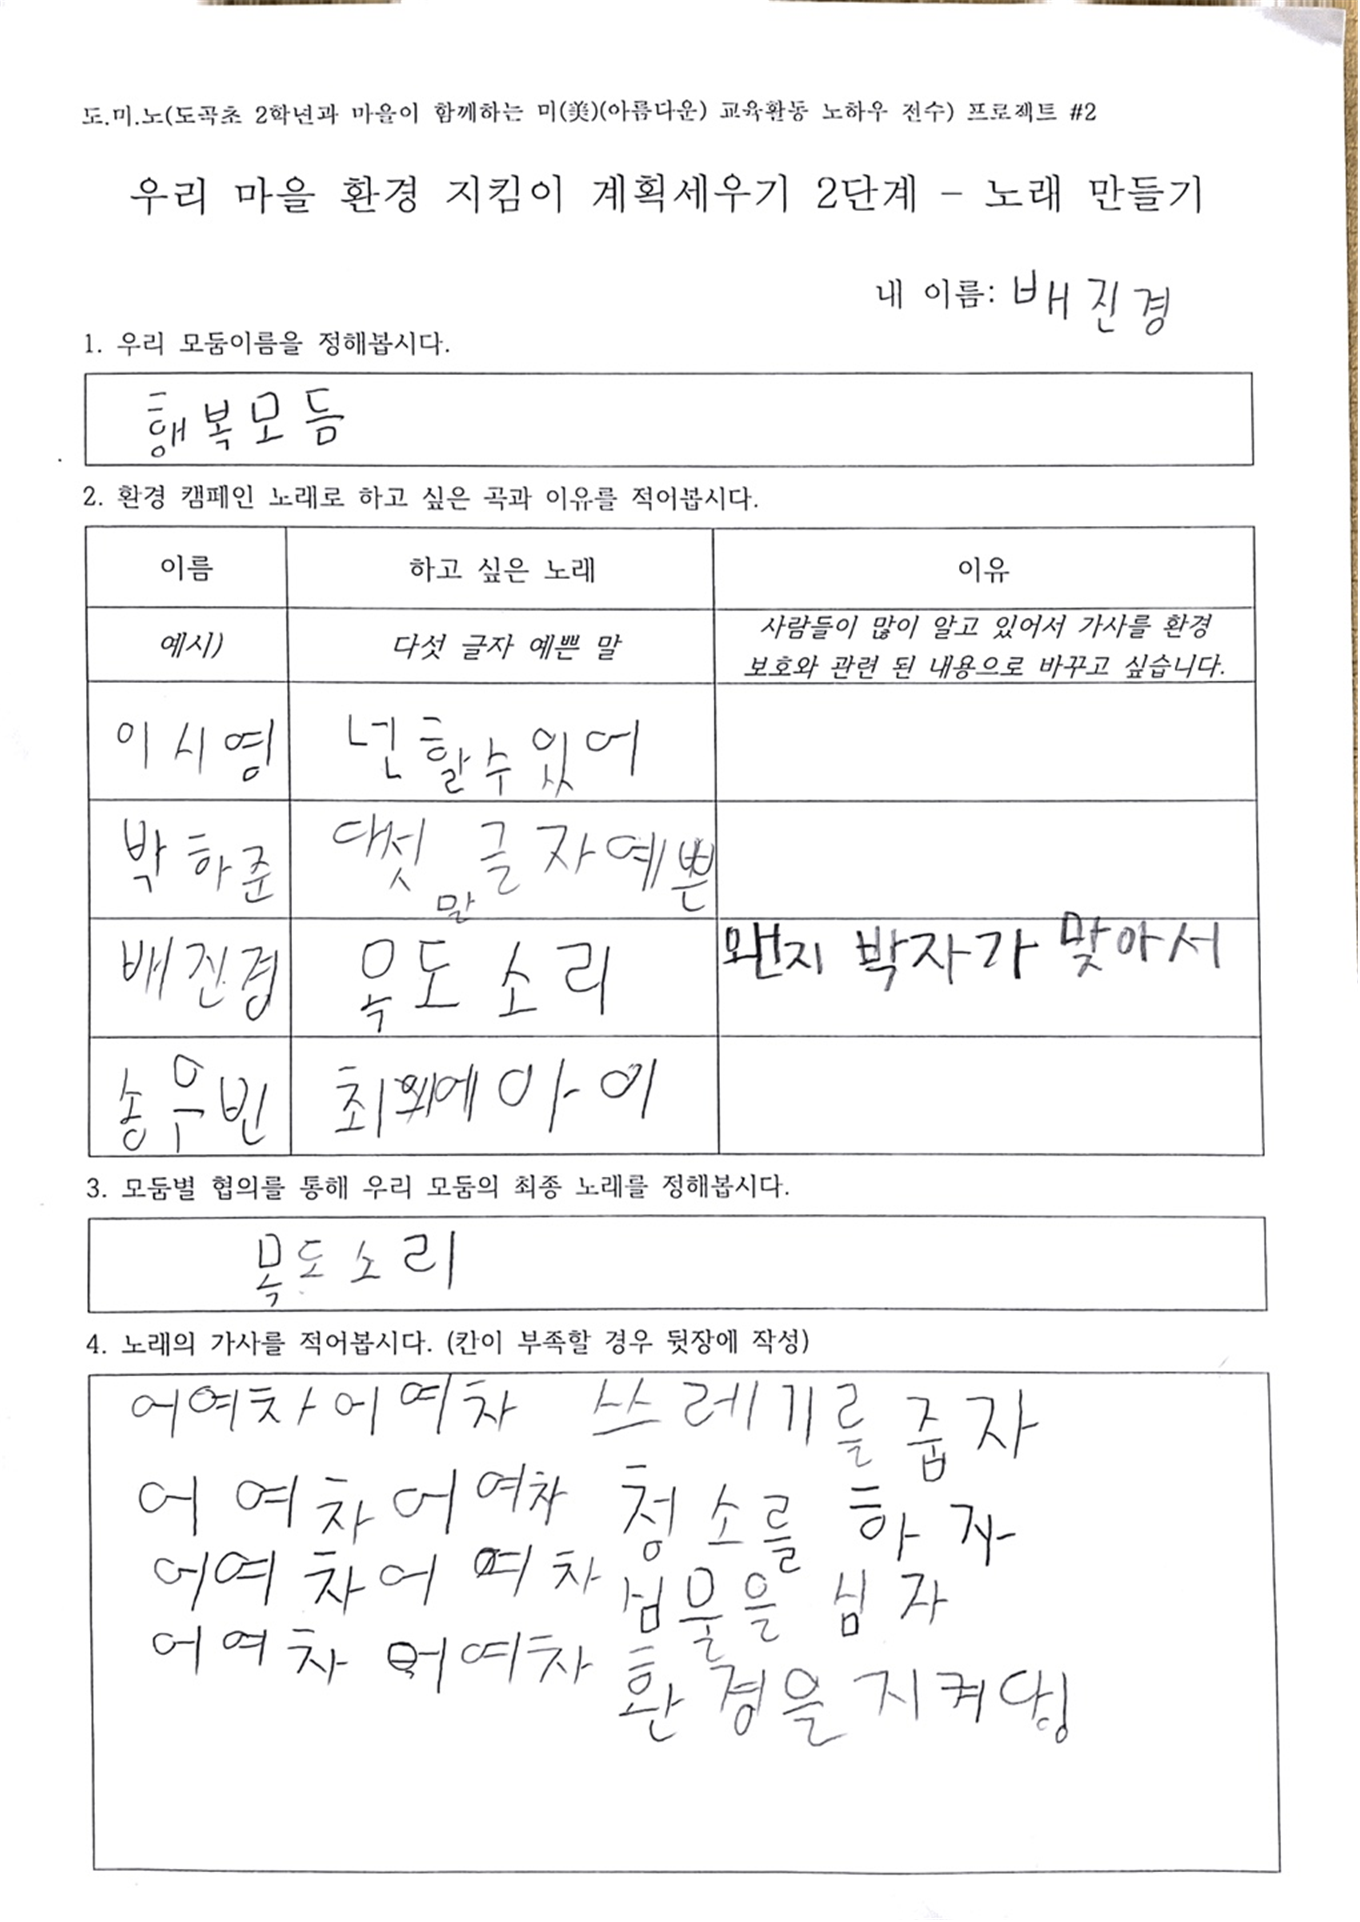 도.미.노(도곡초 2학년과 마을이 함께하는 미(美)(아름다운) 교육활동 노하우 전수) 프로젝트 #2
우리 마을 환경 지킴이 계획세우기 2단계 - 노래 만들기
내 이름: 배진경
1. 우리 모둠이름을 정해봅시다.
행복모듬
2. 환경 캠페인 노래로 하고 싶은 곡과 이유를 적어봅시다.
이름 하고 싶은 노래 이유
예시) 다섯 글자 예쁜 말 사람들이 많이 알고 있어서 가사를 환경
보호와 관련 된 내용으로 바꾸고 싶습니다.
이시영 넌 할수있어
박하준 다섯 글자예쁜
말
배진경 목도소리 왠지 박자가 맞아서
송우빈 최외에아이
3. 모둠별 협의를 통해 우리 모둠의 최종 노래를 정해봅시다.
목도소리
4. 노래의 가사를 적어봅시다. (칸이 부족할 경우 뒷장에 작성)
어여차어여차 쓰레기를줍자
어여차어여차 청소를 하자
어여차어여차 심물을 심자
어여차 어여차 환경을지켜